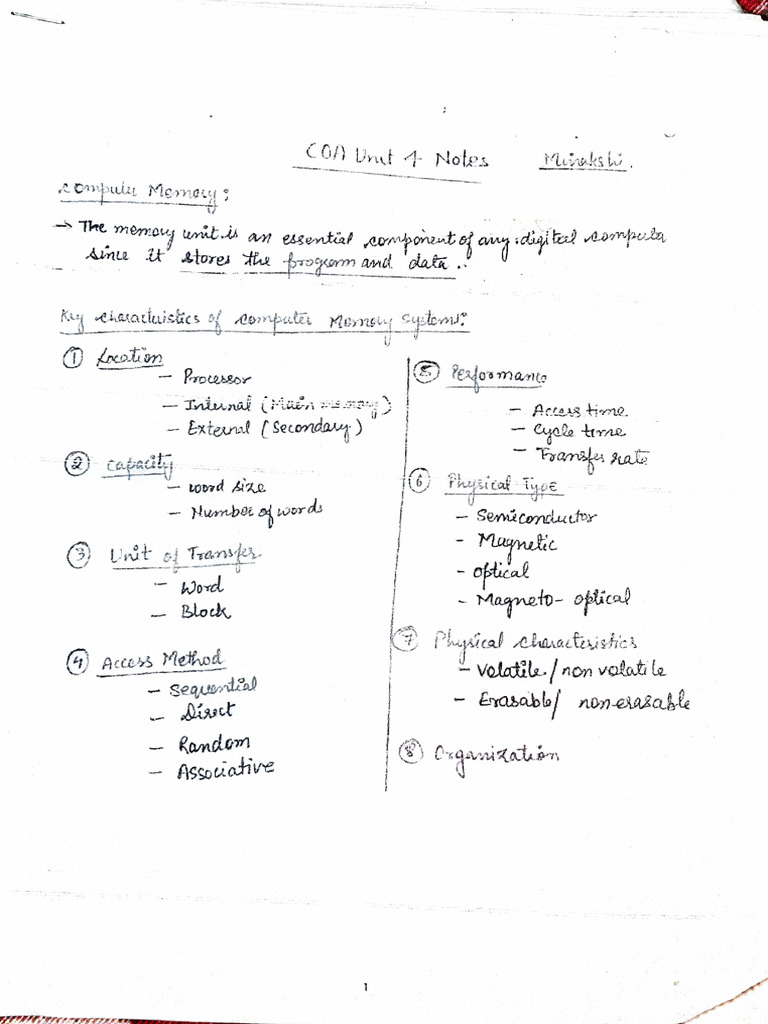 COA Unit 4 Notes Minakshi.
Computer Memory:
→ The memory unit is an essential component of any digital computer
since it stores the program and data.
Key characteristics of computer Memory Systems:
① Location
— Processor
— Internal (Main memory)
— External (Secondary)
② Capacity
— Word size
— Number of words
③ Unit of Transfer
— Word
— Block
④ Access Method
— Sequential
— Direct
— Random
— Associative
⑤ Performance
— Access time.
— Cycle time
— Transfer rate
⑥ Physical Type
— Semiconductor
— Magnetic
— Optical
— Magneto-optical
⑦ Physical characteristics
— Volatile / non volatile
— Erasable / non-erasable
⑧ Organization
1